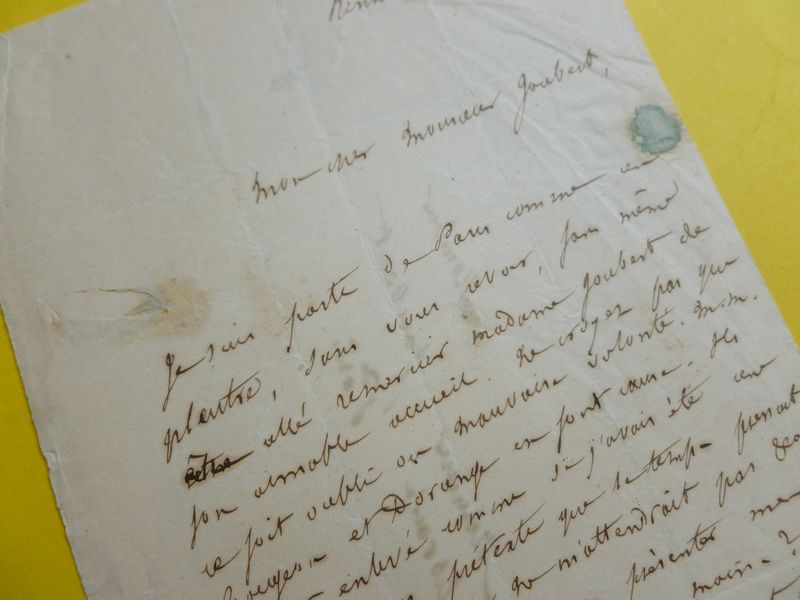 Mon cher Monsieur Joubert,
Je suis parti de Paris comme un
pleutre, sans vous revoir, sans même
être allé remercier madame Joubert de
son aimable accueil. Ne croyez pas que
ce soit oubli ou mauvaise volonté. M.M.
et Dorange en sont cause. Ils
enlevé comme si j'avais été une
prétexte que le temps pressait
ne m'attendrait pas
présenter mes
moins